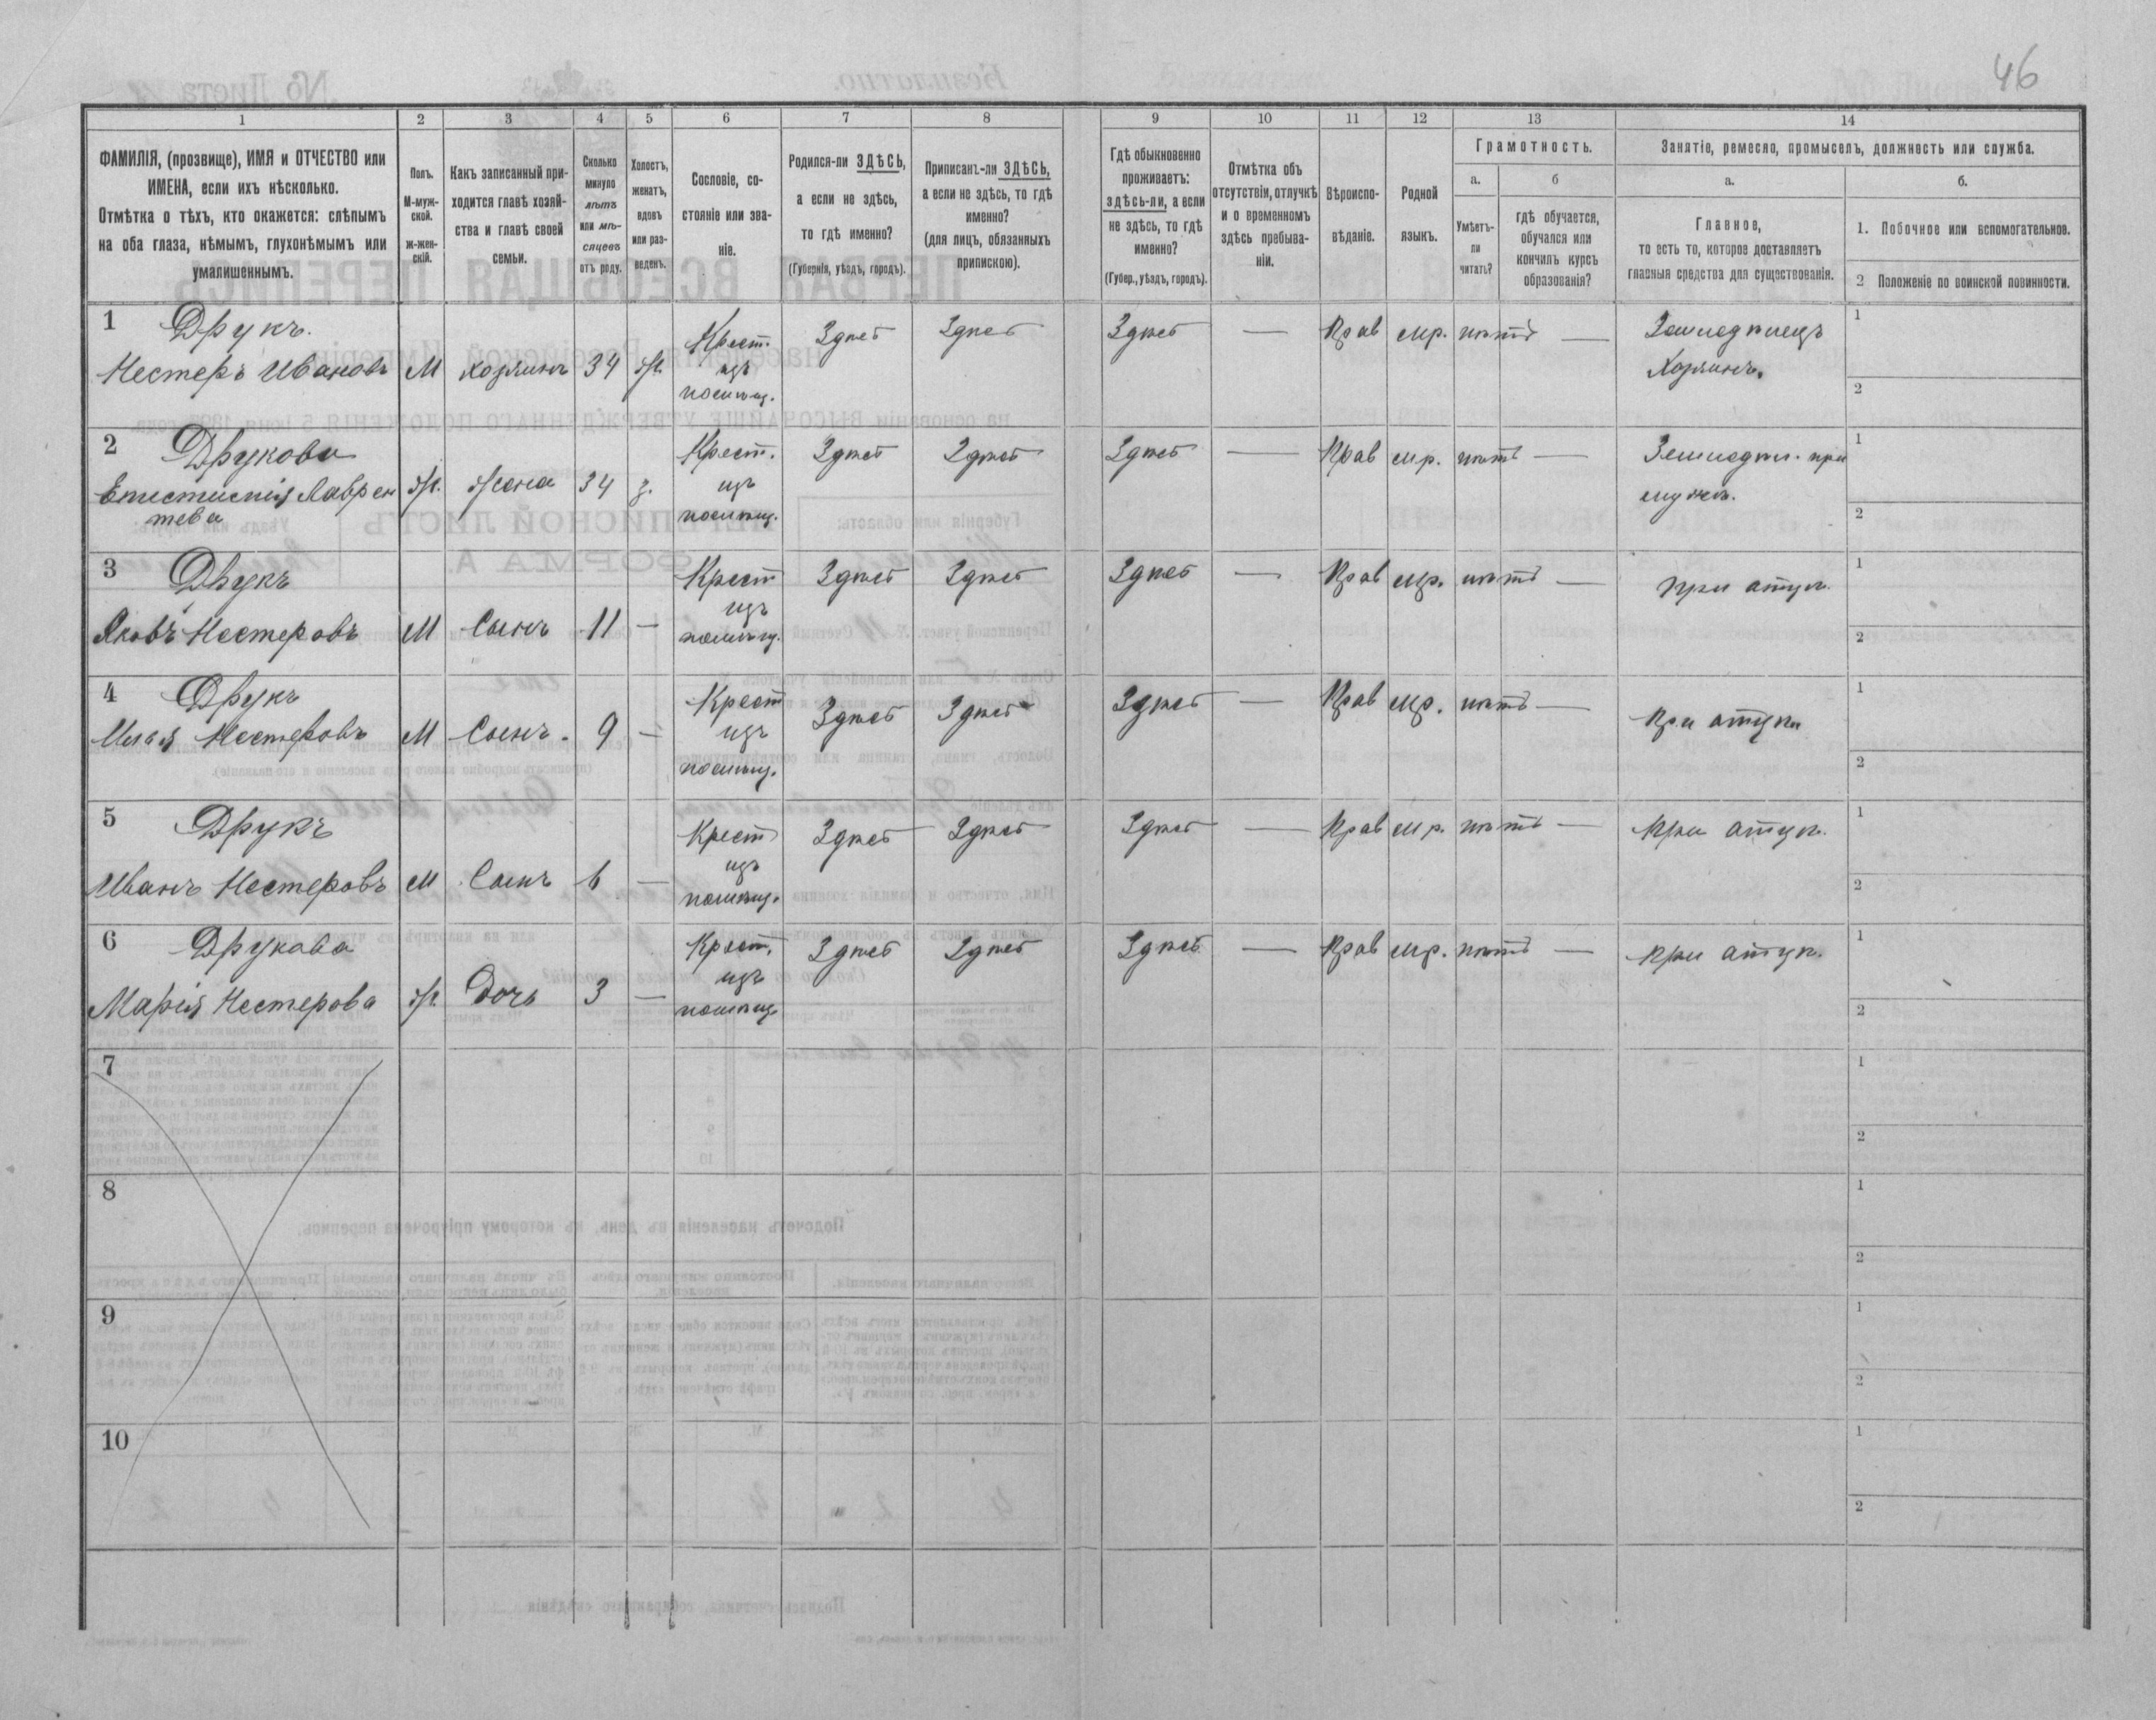 46
1 2 3 4 5 6 7 8 9 10 11 12 13 14
ФАМИЛІЯ, (прозвище), ИМЯ и ОТЧЕСТВО или
ИМЕНА, если ихъ нѣсколько.
Отмѣтка о тѣхъ, кто окажется: слѣпымъ
на оба глаза, нѣмымъ, глухонѣмымъ или
умалишеннымъ.
Полъ.
М-муж-
ской.
ж-жен-
скій.
Какъ записанный при-
ходится главѣ хозяй-
ства и главѣ своей
семьи.
Сколько
минуло
лѣтъ
или мѣ-
сяцевъ
отъ роду.
Холостъ,
женатъ,
вдовъ
или раз-
веденъ.
Сословіе, со-
стояніе или зва-
ніе.
Родился-ли ЗДѢСЬ,
а если не здѣсь,
то гдѣ именно?
(Губернія, уѣздъ, городъ).
Приписанъ-ли ЗДѢСЬ,
а если не здѣсь, то гдѣ
именно?
(для лицъ, обязанныхъ
припискою).
Гдѣ обыкновенно
проживаетъ:
здѣсь-ли, а если
не здѣсь, то гдѣ
именно?
(Губер., уѣздъ, городъ).
Отмѣтка объ
отсутствіи, отлучкѣ
и о временномъ
здѣсь пребыва-
ніи.
Вѣроиспо-
вѣданіе.
Родной
языкъ.
Грамотность.
а.
Умѣетъ-
ли
читать?
б
гдѣ обучается,
обучался или
кончилъ курсъ
образованія?
Занятіе, ремесло, промыселъ, должность или служба.
а.
Главное,
то есть то, которое доставляетъ
главныя средства для существованія.
б.
1. Побочное или вспомогательное.
2 Положеніе по воинской повинности.
1 Друкъ.
Нестеръ Ивановъ М хозяинъ 34 ж.
Крест.
изъ
помѣщ.
Здѣсь Здѣсь Здѣсь — Прав мр. нѣтъ —
Земледѣлецъ
Хозяинъ.
1
2
2 Друкова
Лаврен
тева ж. жена 34 з.
Крест.
изъ
помѣщ.
Здѣсь Здѣсь Здѣсь — Прав мр. нѣтъ —
Земледѣл. при
мужѣ.
1
2
3 Друкъ
Яковъ Нестеровъ М Сынъ 11 —
Крест
изъ
помѣщ.
Здѣсь Здѣсь Здѣсь — Прав мр. нѣтъ — при отцѣ.
1
2
4 Друкъ
Илья Нестеровъ М Сынъ. 9 —
Крест
изъ
помѣщ.
Здѣсь Здѣсь Здѣсь — Прав мр. нѣтъ — при отцѣ
1
2
5 Друкъ
Иванъ Нестеровъ М Сынъ 6 —
Крест
изъ
помѣщ.
Здѣсь Здѣсь Здѣсь — Прав мр. нѣтъ — при отцѣ.
1
2
6 Друкова
Марія Нестерова ж. Дочь 3 —
Крест.
изъ
помѣщ
Здѣсь Здѣсь Здѣсь — Прав мр. нѣтъ — при отцѣ.
1
2
7
1
2
8
1
2
9
1
2
10
1
2